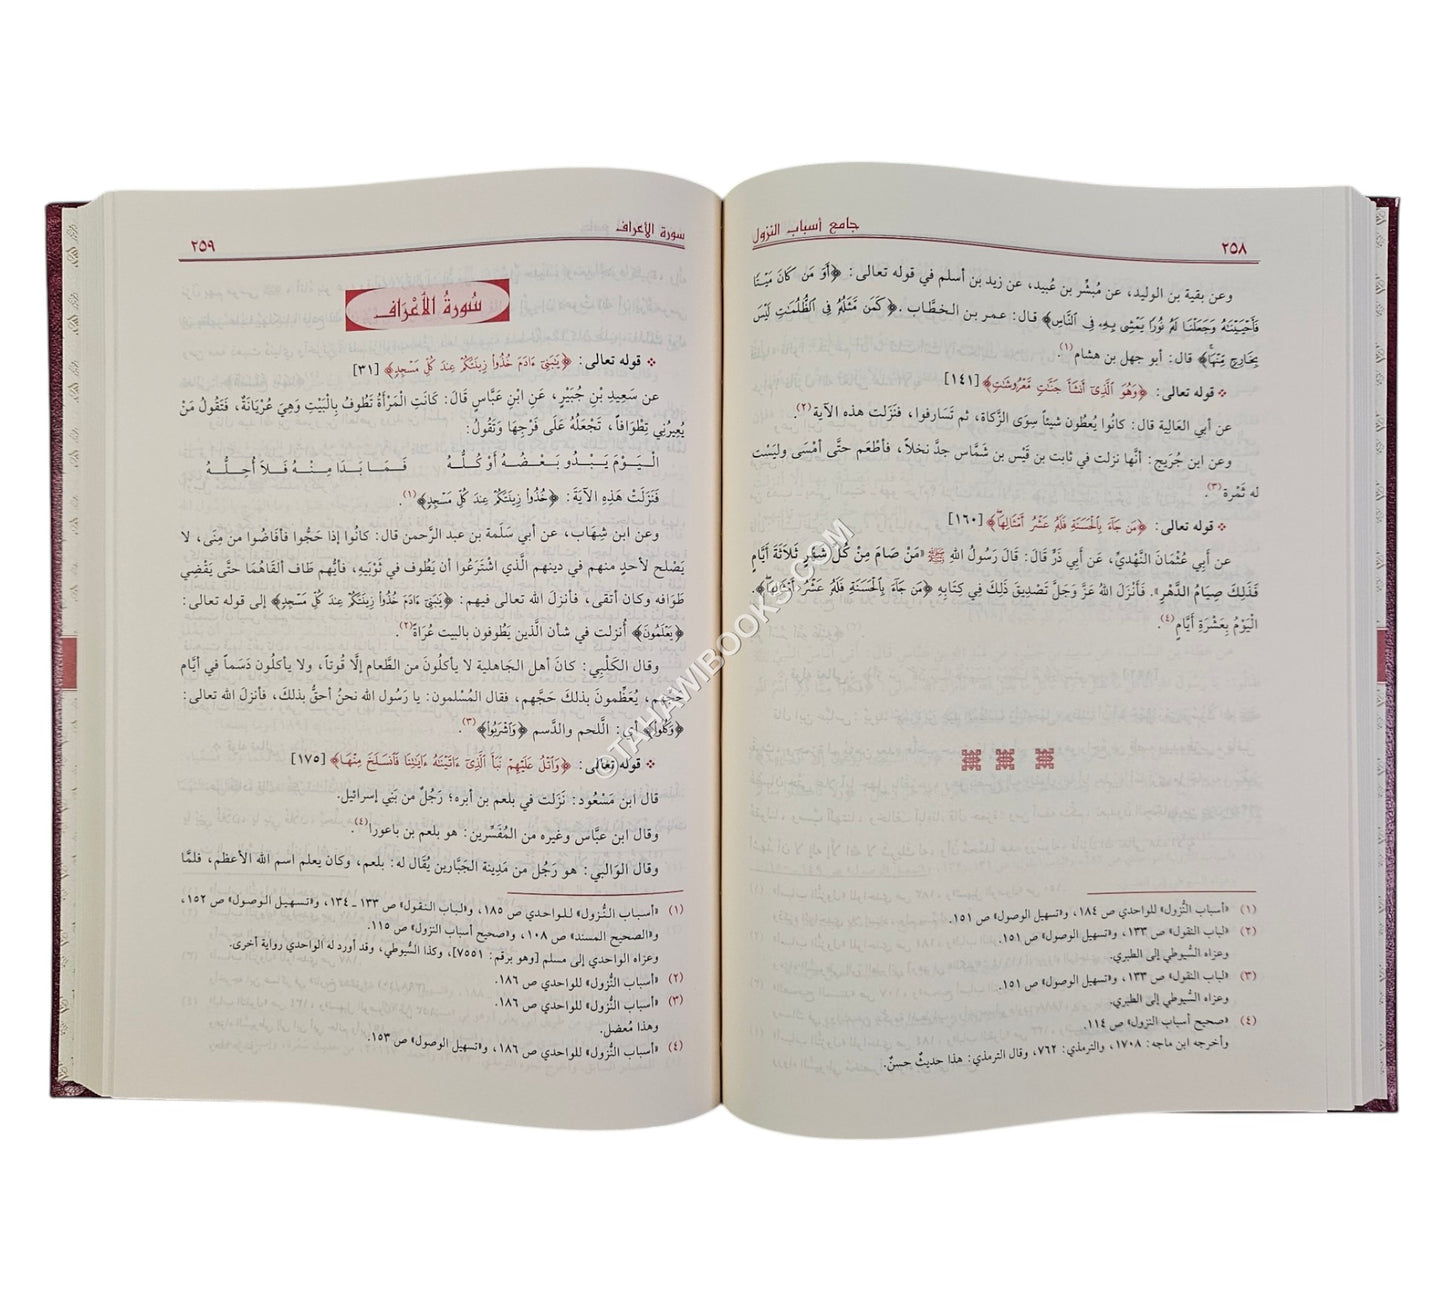 ٢٥٨
جامع أسباب النزول
وعن بقية بن الوليد، عن مُبشِّر بن عُبيد، عن زيد بن أسلم في قوله تعالى: ﴿أَوَ مَن كَانَ مَيْتًا
فَأَحْيَيْنَٰهُ وَجَعَلْنَا لَهُۥ نُورًا يَمْشِى بِهِۦ فِى ٱلنَّاسِ﴾ قال: عمر بن الخطَّاب. ﴿كَمَن مَّثَلُهُۥ فِى ٱلظُّلُمَٰتِ لَيْسَ
بِخَارِجٍ مِّنْهَا﴾ قال: أبو جهل بن هشام(١).
❖ قوله تعالى: ﴿وَهُوَ ٱلَّذِىٓ أَنشَأَ جَنَّٰتٍ مَّعْرُوشَٰتٍ﴾ [١٤١]
عن أبي العَالِية قال: كانُوا يُعطُون شيئاً سِوَى الزَّكاة، ثم تَسَارفوا، فنَزَلت هذه الآية(٢).
وعن ابن جُرَيج: أنَّها نزلت في ثابت بن قَيْس بن شَمَّاس جدَّ نخلاً، فأطْعَم حتَّى أمْسَى وليْسَت
له ثَمْرة(٣).
❖ قوله تعالى: ﴿مَن جَآءَ بِٱلْحَسَنَةِ فَلَهُۥ عَشْرُ أَمْثَالِهَا﴾ [١٦٠]
عَن أَبِي عُثْمَانَ النَّهْدِيِّ، عَن أَبِي ذَرٍّ قَالَ: قَالَ رَسُولُ اللهِ ﷺ «مَنْ صَامَ مِنْ كُلِّ شَهْرٍ ثَلاَثَةَ أَيَّامٍ
فَذَلِكَ صِيَامُ الدَّهْرِ». فَأَنْزَلَ اللهُ عَزَّ وَجَلَّ تَصْدِيقَ ذَلِكَ فِي كِتَابِهِ ﴿مَن جَآءَ بِٱلْحَسَنَةِ فَلَهُۥ عَشْرُ أَمْثَالِهَا﴾.
الْيَوْمُ بِعَشْرَةِ أَيَّامٍ(٤).
(١) «أسباب النُّزول» للواحدي ص ١٨٤، و«تسهيل الوصول» ص ١٥١.
(٢) «لباب النقول» ص ١٣٣، و«تسهيل الوصول» ص ١٥١.
وعزاه السُّيوطي إلى الطبري.
(٣) «لباب النقول» ص ١٣٣، و«تسهيل الوصول» ص ١٥١.
وعزاه السُّيوطي إلى الطبري.
(٤) «صحيح أسباب النزول» ص ١١٤.
وأخرجه ابن ماجه: ١٧٠٨، والترمذي: ٧٦٢، وقال الترمذي: هذا حديثٌ حسنٌ.
سورة الأعراف
٢٥٩
سُورَةُ الأَعْرَافِ
❖ قوله تعالى: ﴿يَٰبَنِىٓ ءَادَمَ خُذُوا۟ زِينَتَكُمْ عِندَ كُلِّ مَسْجِدٍ﴾ [٣١]
عن سَعِيدِ بْنِ جُبَيْرٍ، عَن ابْنِ عَبَّاسٍ قَالَ: كَانَتِ الْمَرْأَةُ تَطُوفُ بِالْبَيْتِ وَهِيَ عُرْيَانَةٌ، فَتَقُولُ مَنْ
يُعِيرُنِي تِطْوَافاً، تَجْعَلُهُ عَلَى فَرْجِهَا وَتَقُولُ:
الْيَوْمَ يَبْدُو بَعْضُهُ أَوْ كُلُّهُ فَمَا بَدَا مِنْهُ فَلاَ أُحِلُّهُ
فَنَزَلَتْ هَذِهِ الآيَةُ: ﴿خُذُوا۟ زِينَتَكُمْ عِندَ كُلِّ مَسْجِدٍ﴾(١).
وعن ابن شِهَاب، عن أبي سَلَمة بن عبد الرَّحمن قال: كانُوا إذا حَجُّوا فأَفَاضُوا من مِنَى، لا
يَصْلح لأحدٍ منهم في دينهم الَّذي اشْتَرَعُوا أن يَطُوف في ثَوْبَيه، فأيُّهم طَاف ألقَاهُمَا حتَّى يَقْضِي
طَوَافه وكان أتقى، فأنزل الله تعالى فيهم: ﴿يَٰبَنِىٓ ءَادَمَ خُذُوا۟ زِينَتَكُمْ عِندَ كُلِّ مَسْجِدٍ﴾ إلى قوله تعالى:
﴿يَعْلَمُونَ﴾ أُنزلت في شأن الَّذين يَطُوفون بالبيت عُرَاةً(٢).
وقال الكَلْبِي: كانَ أهل الجَاهلية لا يأكلُونَ من الطَّعام إلَّا قُوتاً، ولا يأكلُون دَسَماً في أيَّام
حجِّهم، يُعَظِّمونَ بذلكَ حَجَّهم، فقال المُسْلمون: يا رَسُول الله نحنُ أحقُّ بذلكَ، فأنزلَ الله تعالى:
﴿وَكُلُوا۟﴾ أي: الَّلحم والدَّسم ﴿وَٱشْرَبُوا۟﴾(٣).
❖ قوله تعالى: ﴿وَٱتْلُ عَلَيْهِمْ نَبَأَ ٱلَّذِىٓ ءَاتَيْنَٰهُ ءَايَٰتِنَا فَٱنسَلَخَ مِنْهَا﴾ [١٧٥]
قال ابن مَسْعُود: نَزَلت في بلعم بن أبره؛ رَجُلٌ من بَنِي إسرائيل.
وقال ابن عبَّاس وغيره من المُفَسِّرين: هو بلعم بن باعورا(٤).
وقال الوَالبي: هو رَجُل من مَدِينة الجَبَّارين يُقَال له: بلعم، وكان يعلم اسم الله الأعظم، فلمَّا
(١) «أسباب النُّزول» للواحدي ص ١٨٥، و«لباب النقول» ص ١٣٣ ـ ١٣٤، و«تسهيل الوصول» ص ١٥٢،
و«الصحيح المسند» ص ١٠٨، و«صحيح أسباب النزول» ص ١١٥.
وعزاه الواحدي إلى مسلم [وهو برقم: ٧٥٥١]، وكذا السُّيوطي، وقد أورد له الواحدي رواية أخرى.
(٢) «أسباب النُّزول» للواحدي ص ١٨٦.
(٣) «أسباب النُّزول» للواحدي ص ١٨٦.
وهذا مُعضل.
(٤) «أسباب النُّزول» للواحدي ص ١٨٦، و«تسهيل الوصول» ص ١٥٣.
©TAHAWIBOOKS.COM